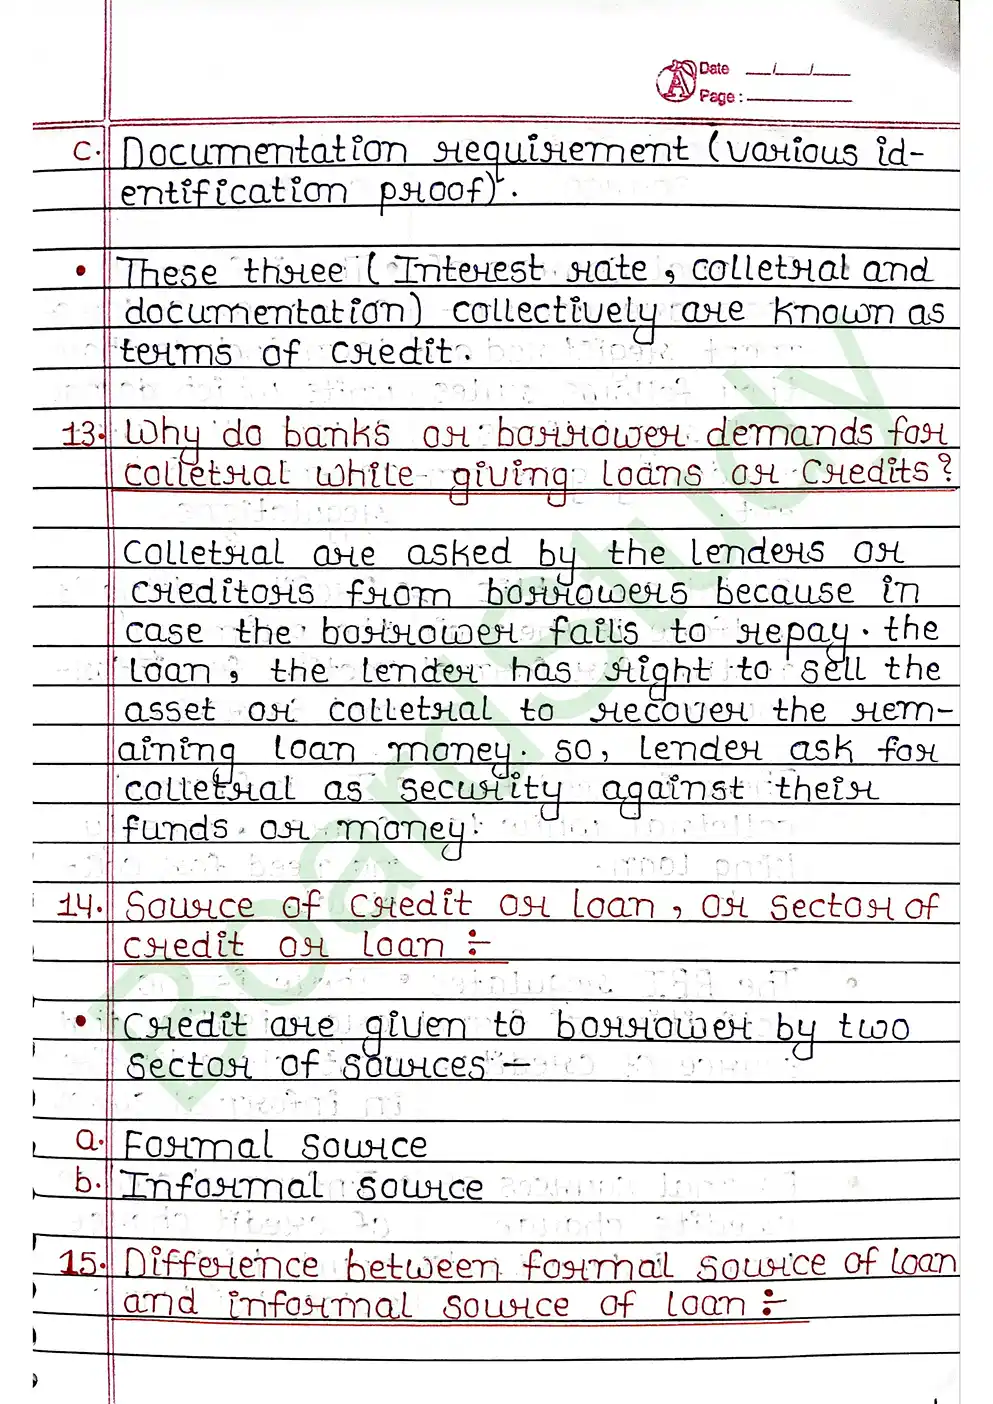 Date __/__/__
Page: ______
c. Documentation requirement (various id-
entification proof).
• These three (Interest rate, colletral and
documentation) collectively are known as
terms of credit.
13. Why do banks or borrower demands for
colletral while giving loans or credits?
Colletral are asked by the lenders or
creditors from borrowers because in
case the borrower fails to repay the
loan, the lender has right to sell the
asset or colletral to recover the rem-
aining loan money. So, lender ask for
colletral as security against their
funds or money.
14. Source of credit or loan, or sector of
credit or loan :-
• Credit are given to borrower by two
sector of sources -
a. Formal source
b. Informal source
15. Difference between formal source of loan
and informal source of loan :-
BoardStudy